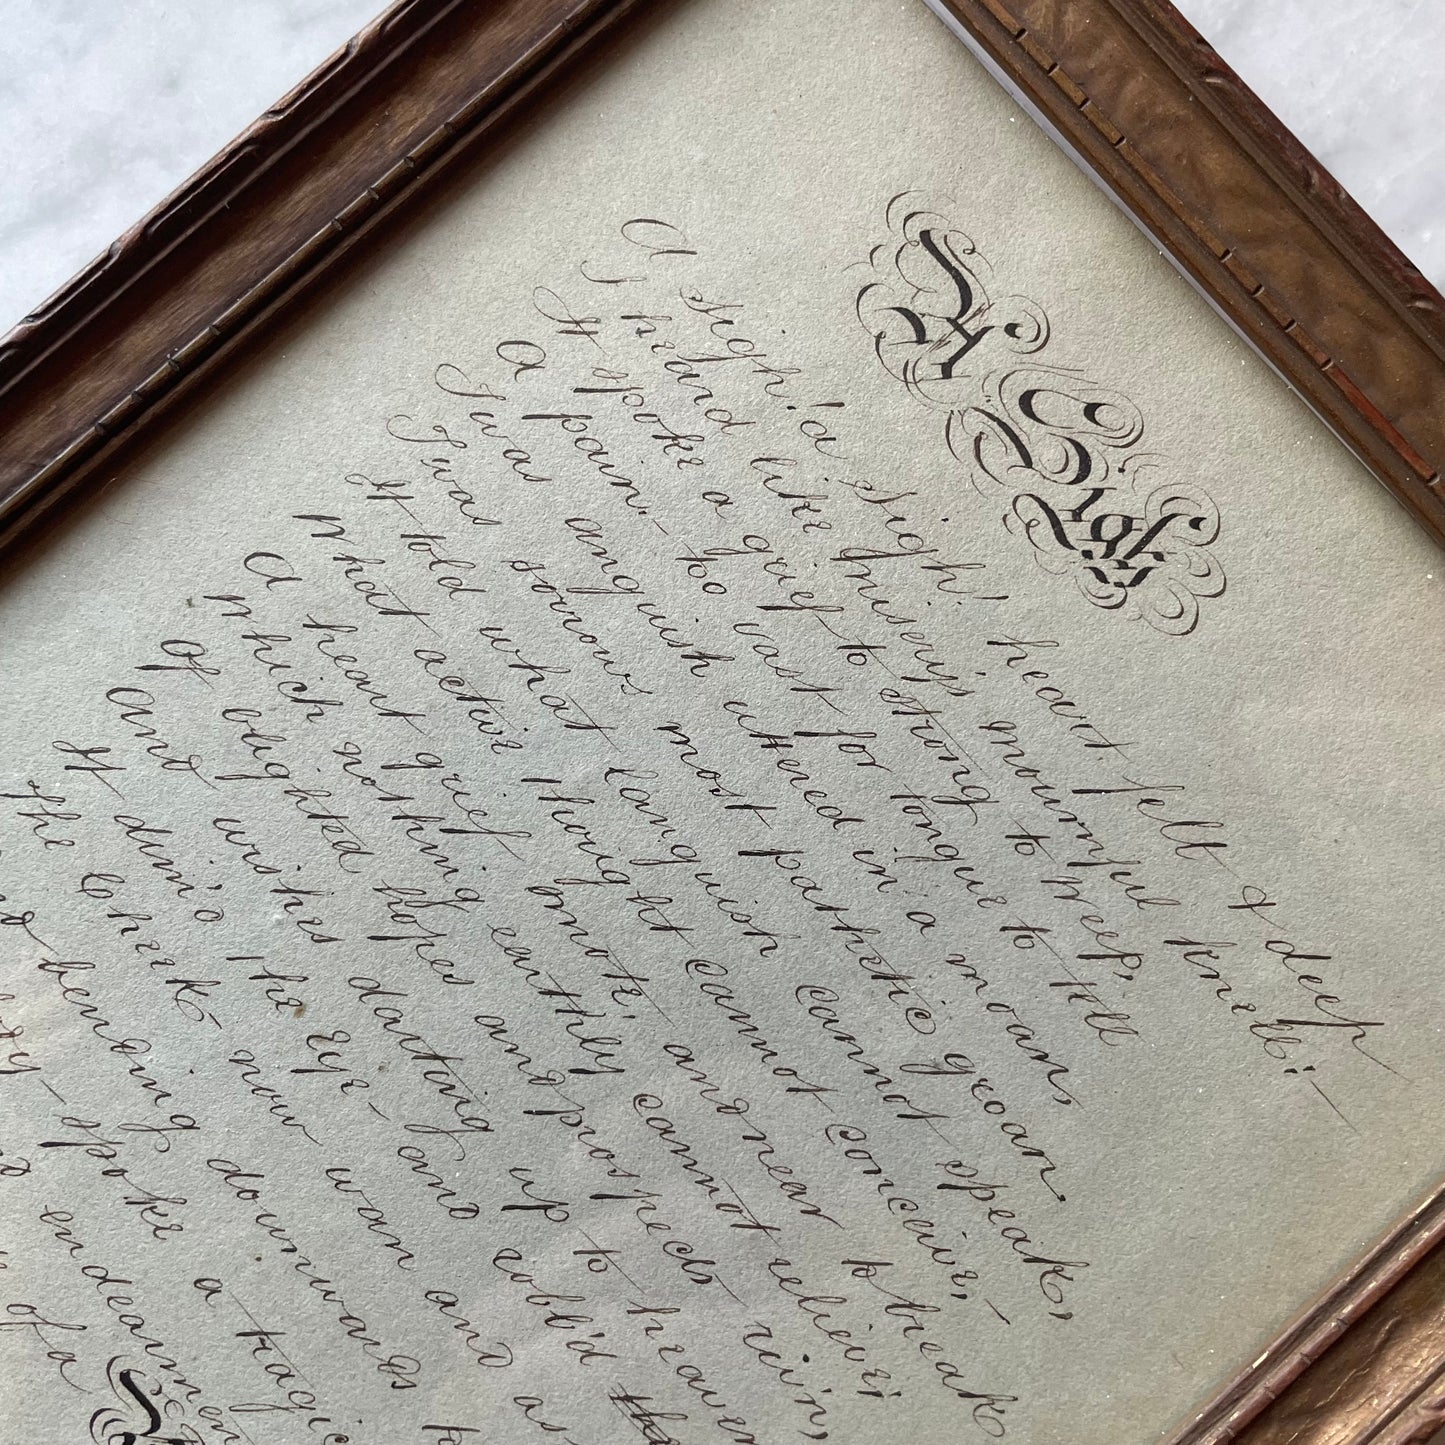 A Sigh.
A sigh! a sigh! heart felt & deep
I heard like misery's mournful knell:
It spoke a grief to strong to weep,
A pain, too vast for tongue to tell
Twas anguish uttered in a moan,
Twas sorrows most pathetic groan.
It told what languish cannot speak,
What active thought cannot conceive;
A heart grief smote, and near to break
Which nothing earthly cannot relieve;
Of blighted hopes and prospects ruin,
And wishes darting up to heaven
It dim'd the eye and robb'd
The Cheek now wan and as
bending downwards
spoke a tragic
endearmen
of a